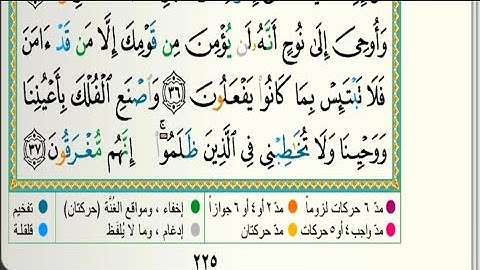 وَأُوحِىَ إِلَىٰ نُوحٍ أَنَّهُۥ لَن يُؤْمِنَ مِن قَوْمِكَ إِلَّا مَن قَدْ ءَامَنَ
فَلَا تَبْتَئِسْ بِمَا كَانُوا۟ يَفْعَلُونَ ٣٦ وَٱصْنَعِ ٱلْفُلْكَ بِأَعْيُنِنَا
وَوَحْيِنَا وَلَا تُخَٰطِبْنِى فِى ٱلَّذِينَ ظَلَمُوٓا۟ ۚ إِنَّهُم مُّغْرَقُونَ ٣٧
مدّ ٦ حركات لزوماً مدّ ٢ أو ٤ أو ٦ جوازاً إخفاء ، ومواقع الغُنَّة (حركتان) تفخيم
مدّ واجب ٤ أو ٥ حركات مدّ حركتان إدغام ، وما لا يُلفَظ قلقلة
٢٢٥